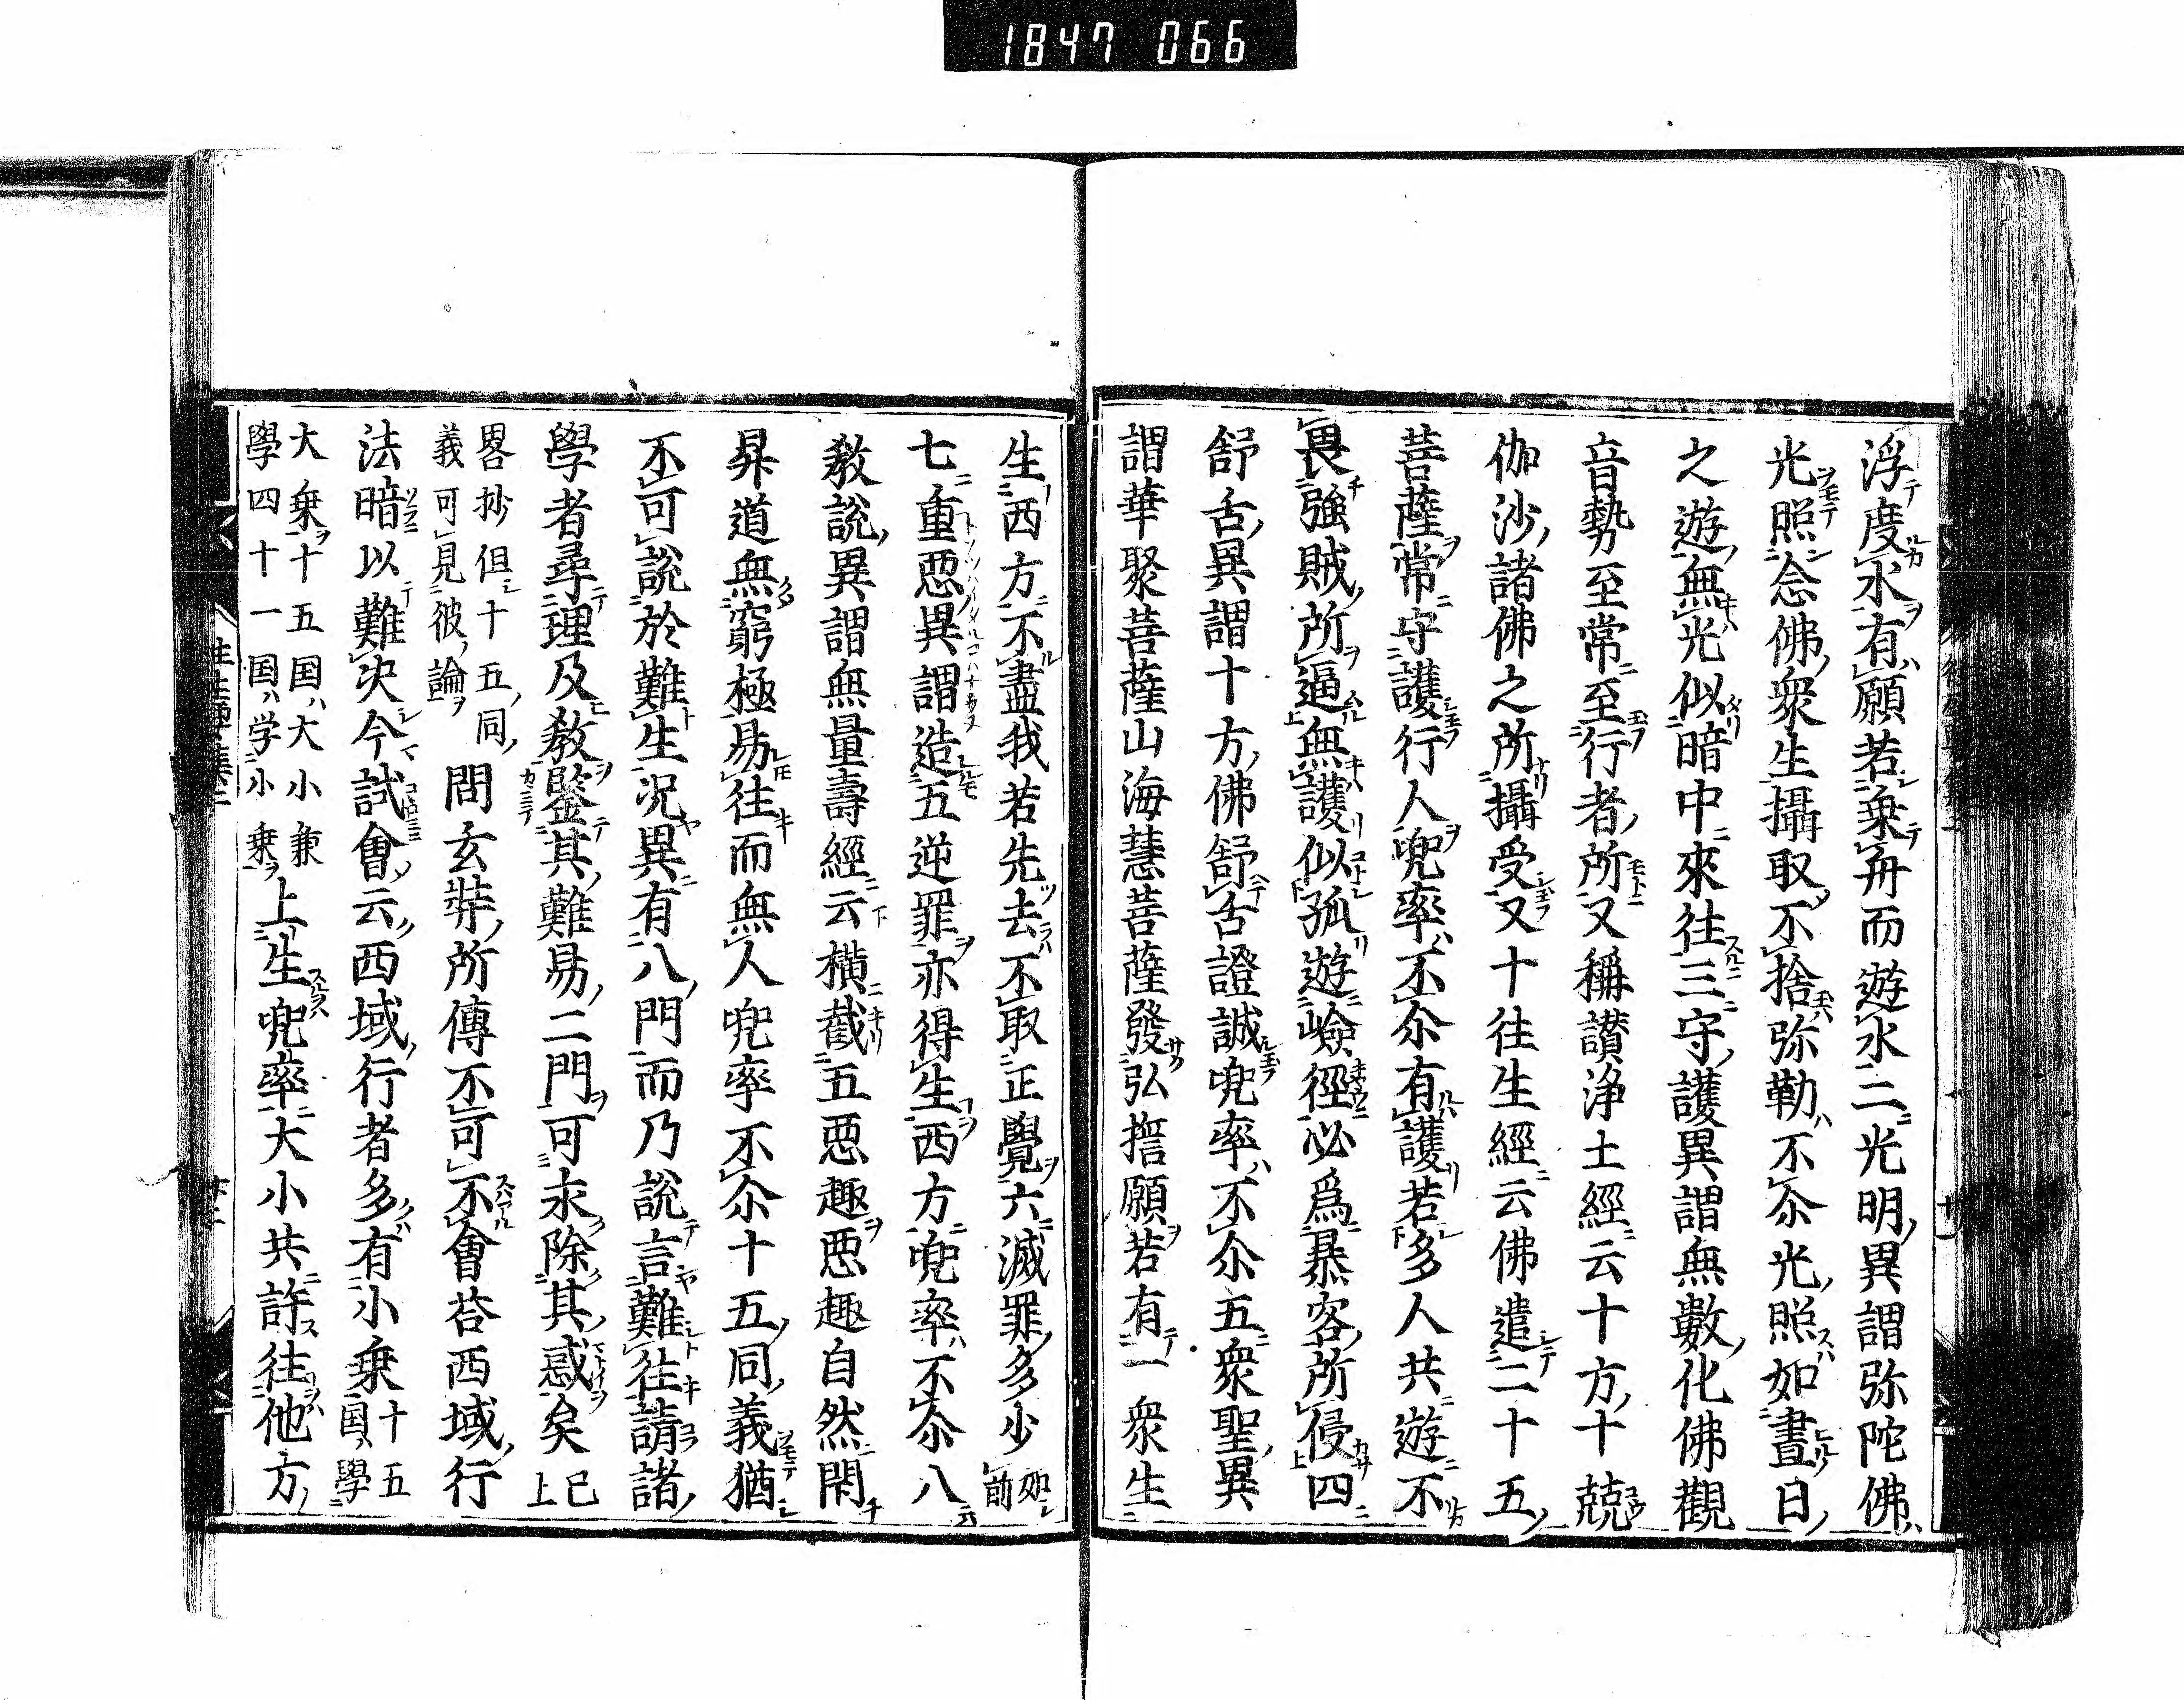 1847 066
浮度水有願若乗舟而遊水二光明異謂弥陀佛
光照念佛衆生攝取不捨弥勒不尒光照如晝日
之遊無光似暗中來往三守護異謂無數化佛觀
音勢至常至行者所又稱讃浄土經云十方十兢
伽沙諸佛之所攝受又十往生經云佛遣二十五
菩薩常守護行人兜率不尒有護若多人共遊不
畏強賊所逼無護似孤遊嶮徑必爲暴客所侵四
舒舌異謂十方佛舒舌證誠兜率不尒五衆聖異
謂華聚菩薩山海慧菩薩發弘誓願若有一衆生
生西方不盡我若先去不取正覺六滅罪多少如前
七重惡異謂造五逆罪亦得生西方兜率不尒八
教說異謂無量壽經云横截五惡趣惡趣自然閇
昇道無窮極易往而無人兜率不尒十五同義猶
不可說於難生況異有八門而乃說言難往請諸
學者尋理及教鑒其難易二門可永除其惑矣已上
畧抄但十五同
義可見彼論
問玄奘所傳不可不會荅西域行
法暗以難决今試會云西域行者多有小乗十五国學
大乗十五国大小兼
學四十一国学小乗
上生兜率大小共許往他方